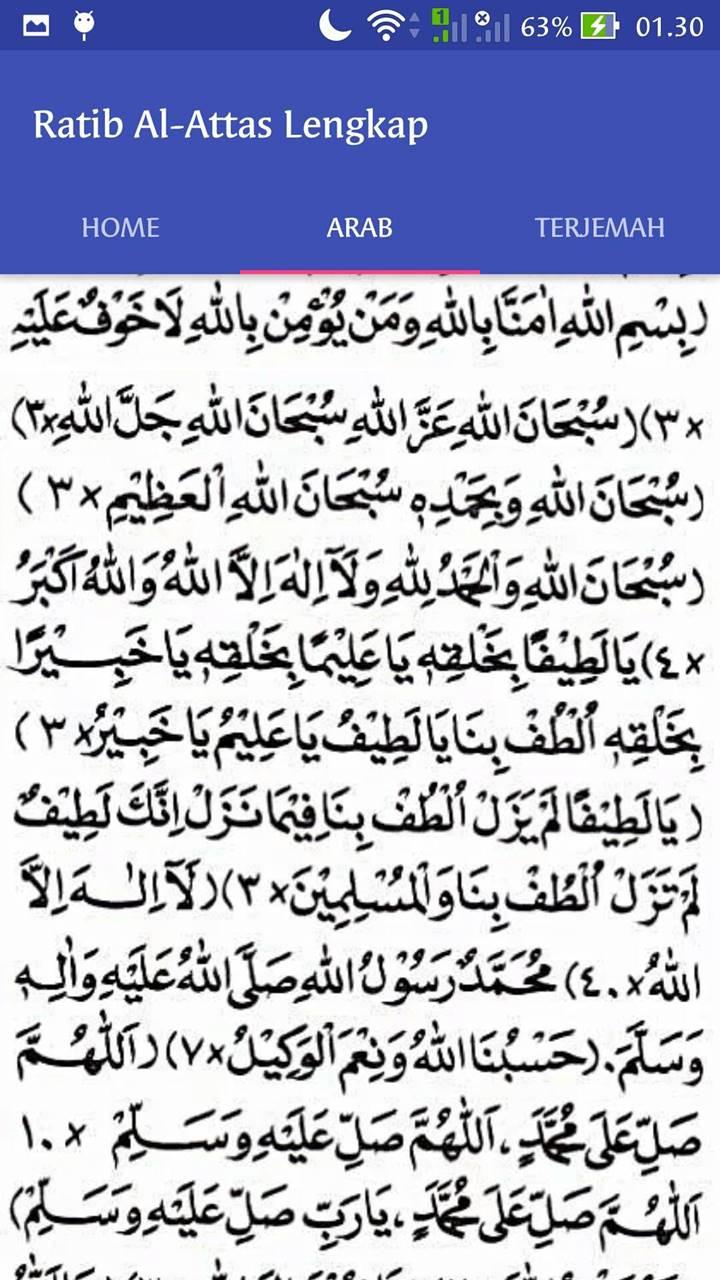 63% 01.30
Ratib Al-Attas Lengkap
HOME ARAB TERJEMAH
(بِسْمِ اللهِ اٰمَنَّا بِاللهِ وَمَنْ يُؤْمِنْ بِاللهِ لَا خَوْفٌ عَلَيْهِ
×٣)(سُبْحَانَ اللهِ عَزَّ اللهِ سُبْحَانَ اللهِ جَلَّ اللهِ×٣)
(سُبْحَانَ اللهِ وَبِحَمْدِهٖ سُبْحَانَ اللهِ الْعَظِيْمِ×٣)
(سُبْحَانَ اللهِ وَالْحَمْدُ لِلّٰهِ وَلَآ اِلٰهَ اِلَّا اللهُ وَاللهُ اَكْبَرُ
×٤) يَا لَطِيْفًا بِخَلْقِهٖ يَا عَلِيْمًا بِخَلْقِهٖ يَا خَبِيْرًا
بِخَلْقِهٖ اُلْطُفْ بِنَا يَا لَطِيْفُ يَا عَلِيْمُ يَا خَبِيْرُ×٣)
(يَا لَطِيْفًا لَمْ يَزَلْ اُلْطُفْ بِنَا فِيْمَا نَزَلْ اِنَّكَ لَطِيْفٌ
لَمْ تَزَلْ اُلْطُفْ بِنَا وَالْمُسْلِمِيْنَ×٣)(لَآ اِلٰهَ اِلَّا
اللهُ×٤٠) مُحَمَّدٌ رَسُوْلُ اللهِ صَلَّى اللهُ عَلَيْهِ وَاٰلِهٖ
وَسَلَّمَ. (حَسْبُنَا اللهُ وَنِعْمَ الْوَكِيْلُ×٧)(اَللّٰهُمَّ
صَلِّ عَلَى مُحَمَّدٍ، اَللّٰهُمَّ صَلِّ عَلَيْهِ وَسَلِّمْ ×١٠
اَللّٰهُمَّ صَلِّ عَلَى مُحَمَّدٍ، يَارَبِّ صَلِّ عَلَيْهِ وَسَلِّمْ)